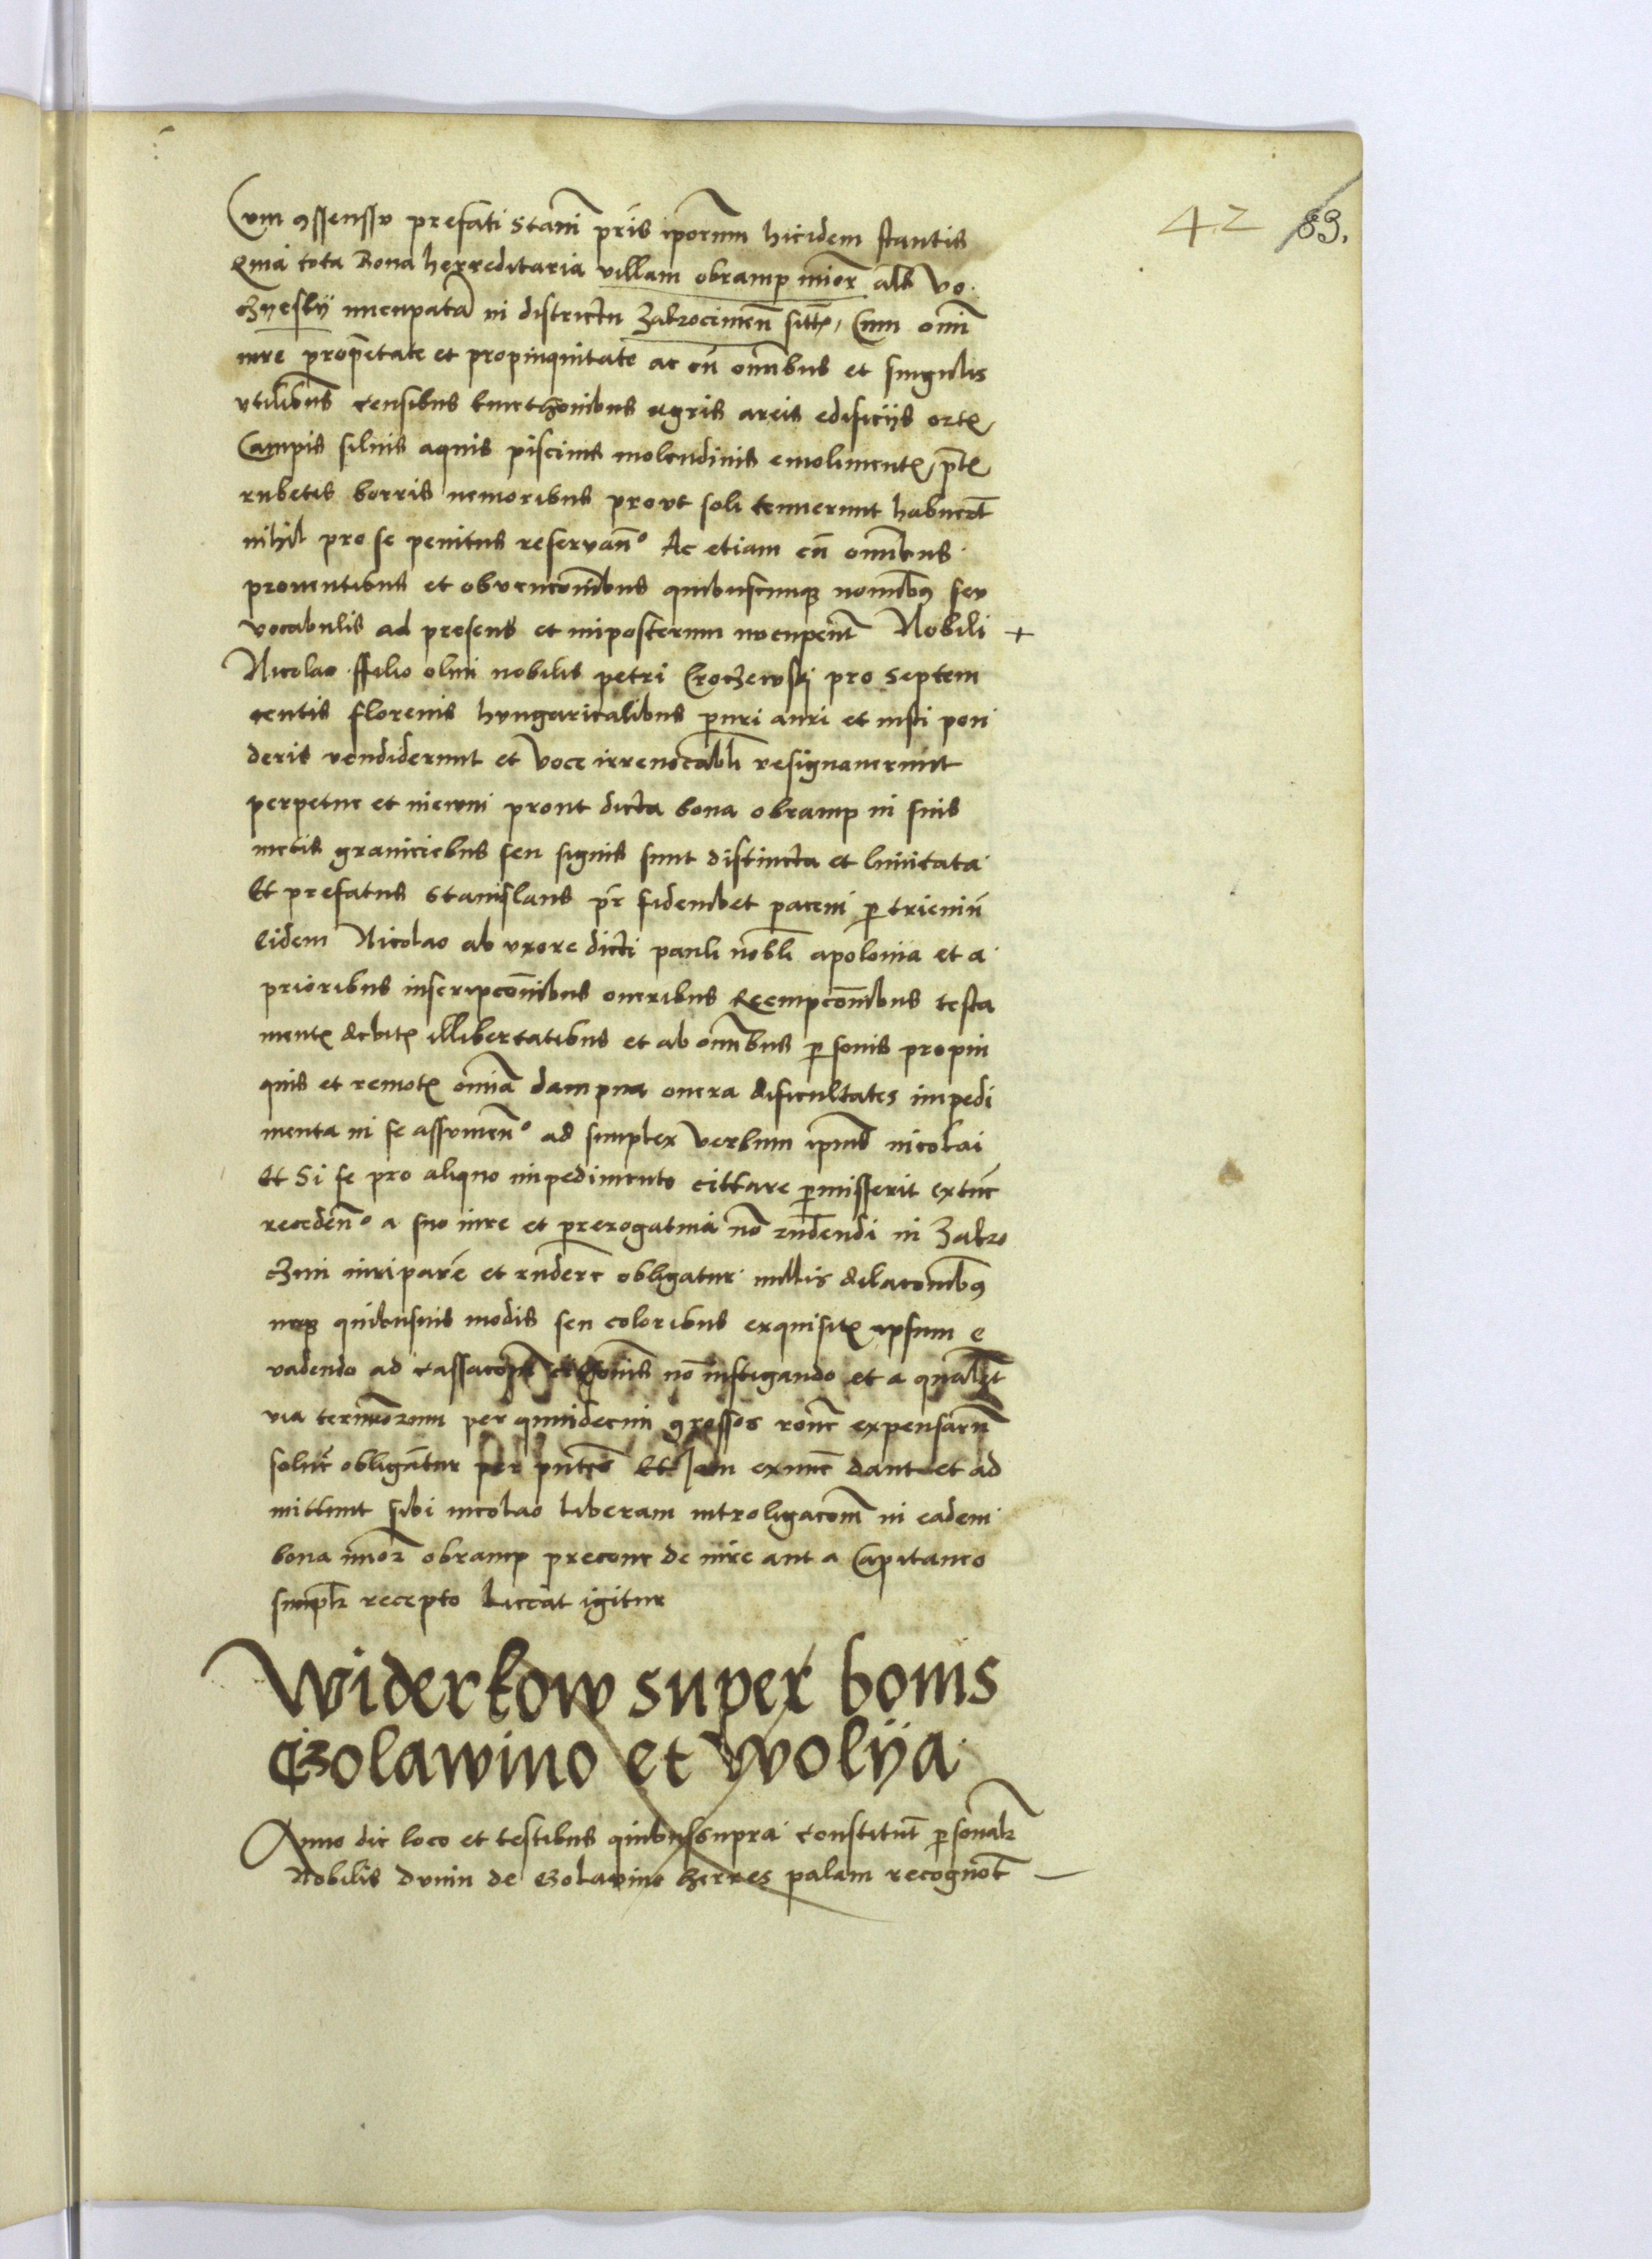 42 83.
Cum ꝯssenssu prefati Stanī pr̄is ipōrum hicidem stantis
Quia tota Bona herreditaria villam obramp minor al̄s vo
chnesly nuncupatā in districtu Zakrocimen̄ sittꝭ, Cum omī
iure prop̄etate et propinquitate ac cū omībus et singulis
vtilibus censibus kmethonibus agris areis edificijs ortꝭ
Campis siluis aquis piscinis molendinis emolimentꝭ, pr̄tꝭ
rubetis borris nemoribus prout soli tenuerunt habuer̄t
nihil pro se penitus reseruan̄º Ac etiam cū omībus
prouentibus et obuencoībus quibuscunqꝫ nomībꝰ seu
vocabulis ad presens et inposterum nūcupent̄ Nobili +
Nicolao ffilio olim nobilis petri Crochewsky pro septem
centis florenis hungaricalibus puri auri et iusti pon
deris vendiderunt et voce irreuocabl̄i resignauerunt
perpetue et in ewm prout dicta bona obramp in suis
metis graniciebus seu signis sunt distincta et limitata
Et prefatus Stanislaus pr̄ fideiubet pacem per trieniū
Eidem Nicolao ab vxore dicti pauli nobl̄i apolonia et a
prioribus inscripcoībus oneribus Reempcoībus testa
mentꝭ debitꝭ illibertatibus et ab omībus personis propin
quis et remotꝭ omīa dampna onera dificultates impedi
menta in se assumen̄º ad simplex verbum ipīus nicolai
Et Si se pro aliquo impedimento cittare permisserit extūc
receden̄º a suo iure et prerogatiua nō rn̄dendi in Zakro
chim iuri parē et rn̄dere obligatur nullis dilacoībꝰ
neqꝫ quibusuis modis seu coloribus exquisitꝭ ipsum e
vadendo ad cassacoīs nō instigando et a qual̄t
via terminorum per quindecim grossos rōne expensarū
soluē obligātur per pn̄tes Et Jam exnunc dant et ad
mittunt sibi nicolao liberam introligacoīm in eadem
bona minor obramp precone de iure aut a Capitaneo
simpl̄r recepto Liceat igitur
Widerkow super bonis
Golawino et wolija
Anno die loco et testibus quibus supra constitut̄ personal̄r
Nobilis Dunin de Golawino herres palam recognot̄ —